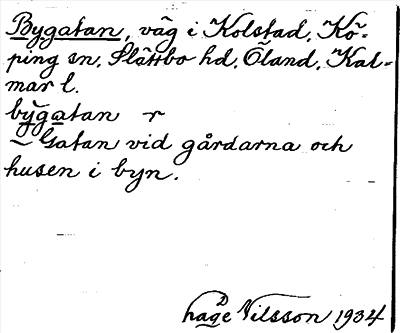 Bygatan, väg i Kolstad, Kö-
ping sn. Slättbo hd. Öland, Kal-
mar l.
bygatan r
~ Gatan vid gårdarna och
husen i byn.
Hage Nilsson 1934